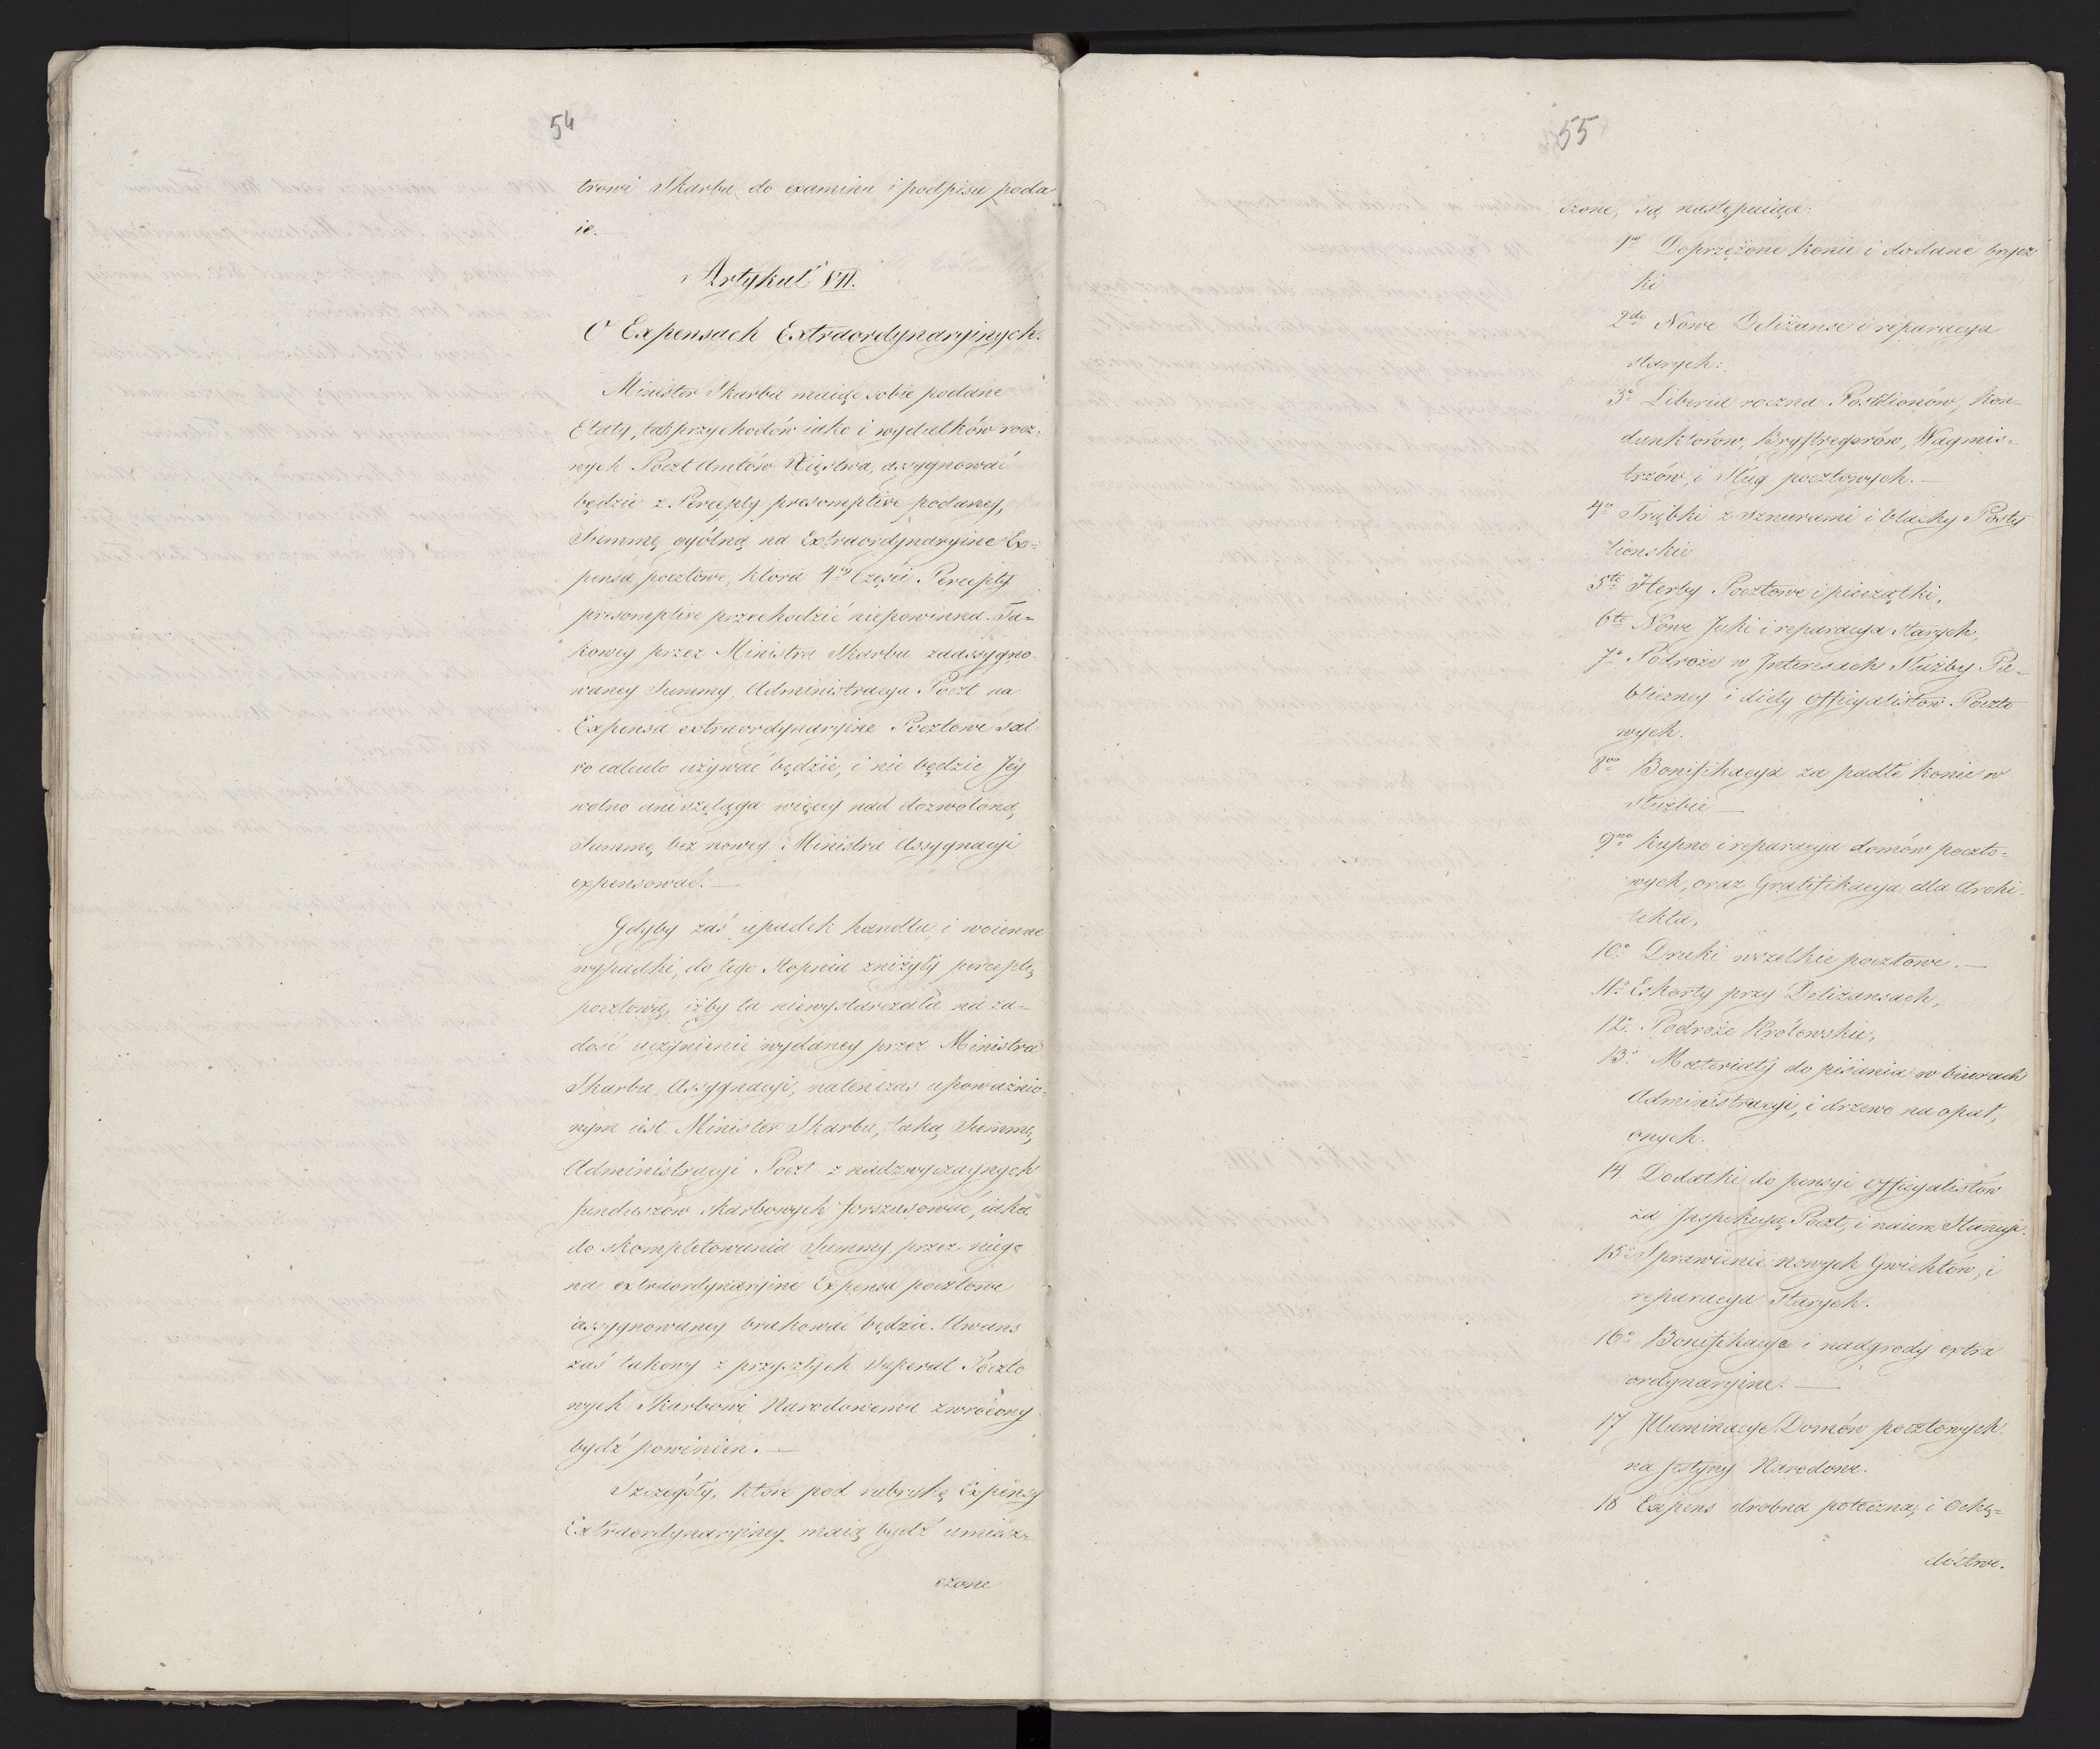 54
trowi Skarbu do examinu i podpisu poda
ie.—
Artykuł VII.
O Expensach Extraordynaryinych.
Minister Skarbu maiąc sobie podane
Etaty, tak przychodów iako i wydatków rocz-
nych Poczt Amtów Xięstwa, assygnować
będzie z Percepty presomptive podaney,
Summę ogólną na Extraordynaryine Ex-
pensa pocztowe, ktora 4tey Części Percepty
presomptive przechodzić niepowinna. Ta-
kowey przez Ministra Skarbu zaassygno-
waney Summy, Administracya Poczt na
Expensa extraordynaryine Pocztowe sal-
vo calculo używać będzie, i nie będzie Jey
wolno ani szeląga więcey nad dozwoloną
Summę bez nowey Ministra Assygnacyi
expensować.—
Gdyby zaś upadek handlu i woienne
wypadki, do tego Stopnia zniżyły perceptę
pocztową, iżby ta niewystarczała na za-
dość uczynienie wydaney przez Ministra
Skarbu Assygnacyi, natenczas upoważnio-
nym iest Minister Skarbu, taką Summę
Administracyi Poczt z nadzwyczaynych
funduszów Skarbowych forszusować, iaka
do skompletowania Summy przez niego
na extraordynaryine Expensa pocztowe
assygnowaney brakować będzie. Awans
zaś takowy z przyszłych Superat Poczto
wych Skarbowi Narodowemu zwrócony
bydź powinien.—
Szczegóły, które pod rubrykę Expensy
Extraordynaryiney maią bydź umiesz-
czone
55
czone, są następuiące:
1mo Doprzężone konie i dodane brycz
ki
2do Nowe Deliżanse i reparacya
starych:
3o Liberia roczna Postilionów, Kon-
duktorów, Bryftregerów, Wagmis-
trzów, i Sług pocztowych.—
4to Trąbki z sznurami i blachy Posty
lionskie
5te Herby Pocztowe i pieczątki,
6te Nowe Juki i reparacya Starych,
7o Podróże w Jnteresach Służby Pu-
bliczney i diety Officyalistow Poczto
wych.
8vo Bonifikacya za padłe konie w
Służbie—
9no Kupno i reparacya domów poczto-
wych, oraz Gratifikacya dla Archi-
tekta,
10o Druki wszelkie pocztowe.—
11o Eskorty przy Deliżansach,
12o Podróże Królewskie,
13o Materiały do pisania w biurach
Administracyi, i drzewo na opał,
onych.
14. Dodatki do pensyi Officyalistów
za Jnspekcyą Poczt, i naiem Stancyi.
15o Sprawienie nowych Gwichtów, i
reparacya Starych.
16o Bonifikacye i nadgrody extra
ordynaryine.—
17 Jlluminacye Domów pocztowych
na festyny Narodowe.
18 Expens drobna potoczna, i Ochę-
dóstwo.